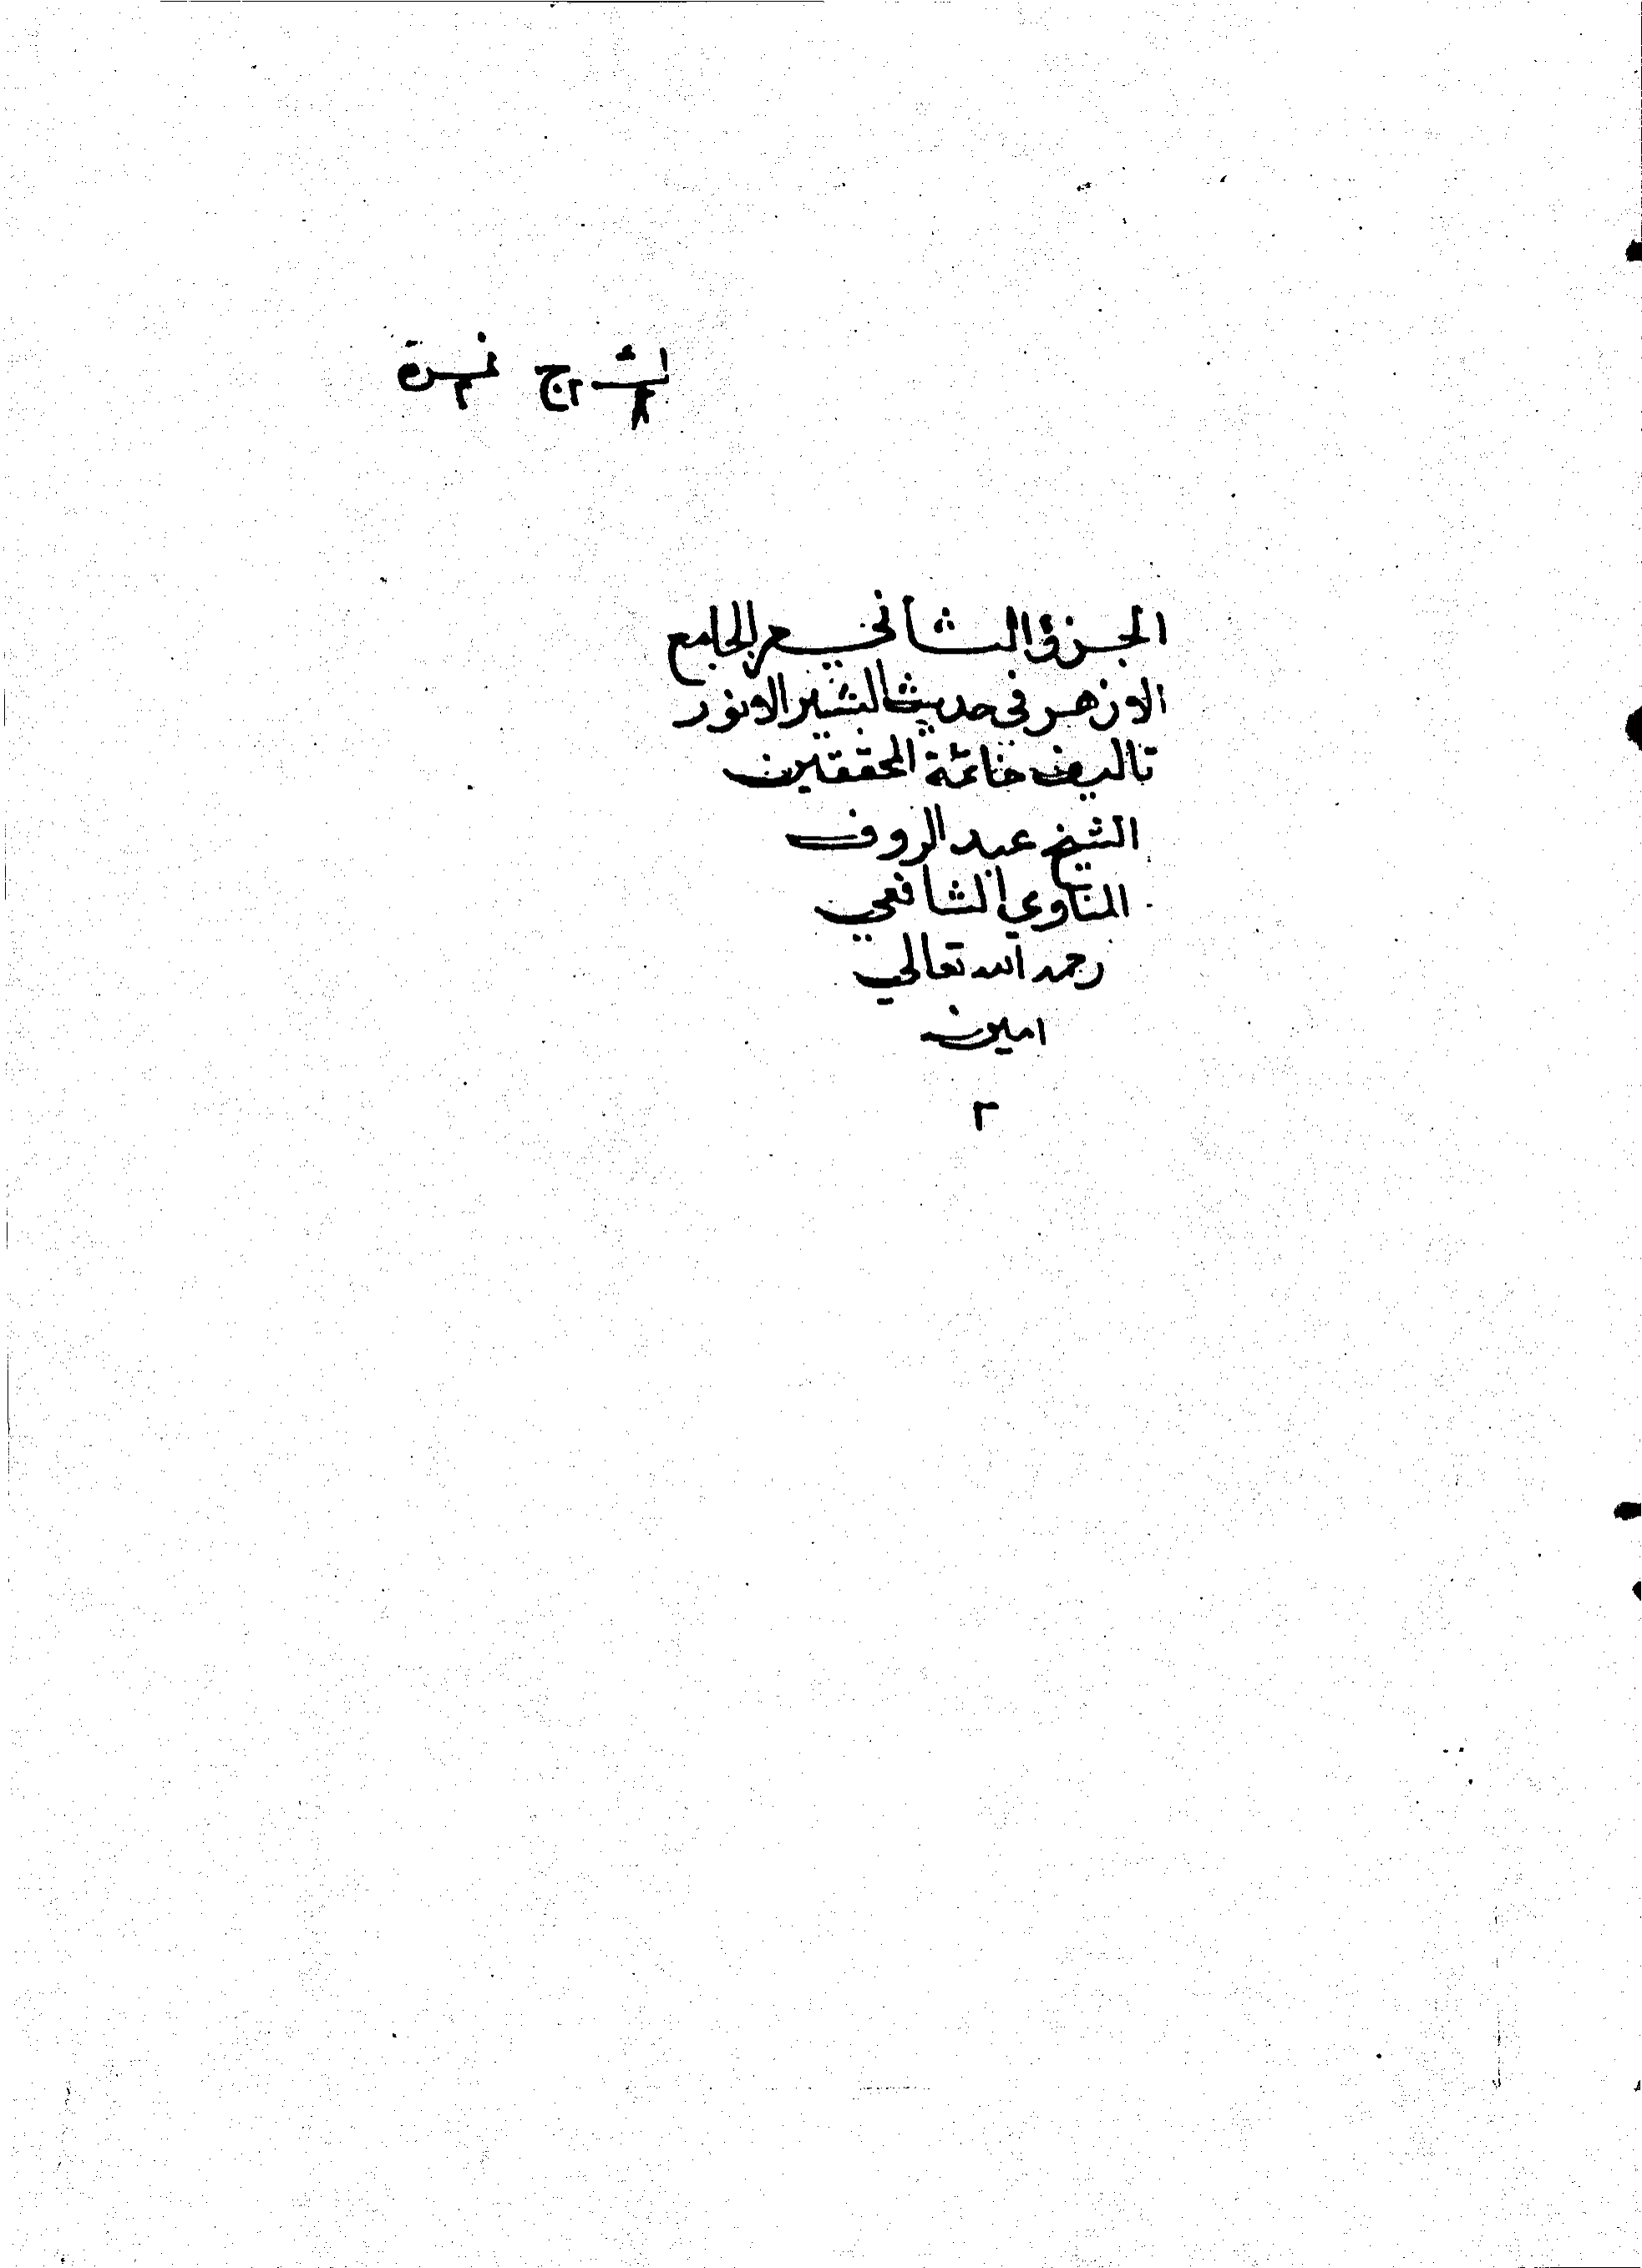 الجزؤ الثاني من الجامع
الازهر في حديث البشير الانور
تاليف خاتمة المحققين
الشيخ عبد الروف
المناوي الشافعي
رحمه الله تعالي
امين
٢